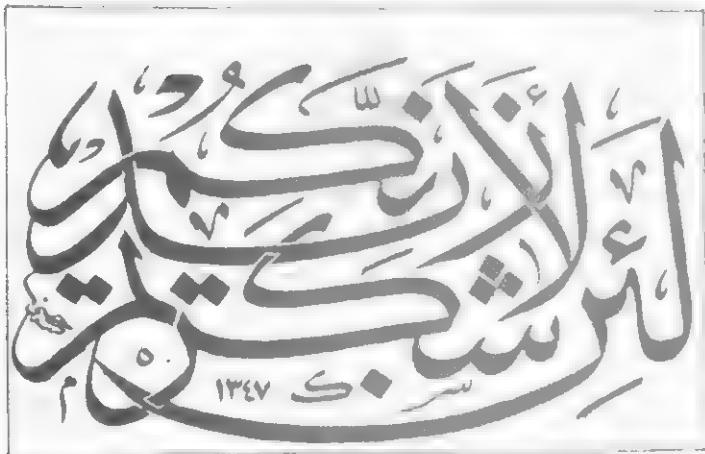 لَئِن شَكَرْتُمْ لَأَزِيدَنَّكُمْ
١٣٤٧